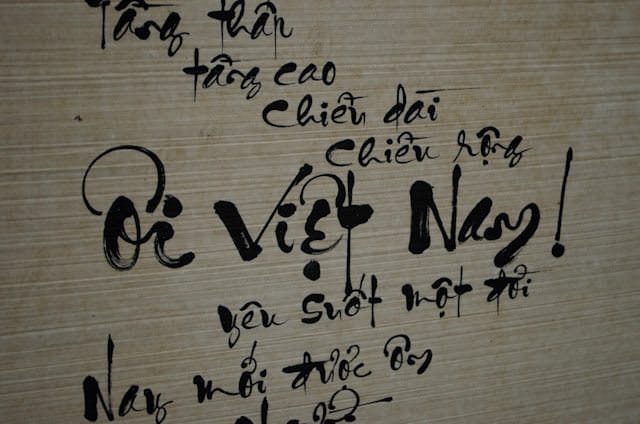 Tầng thấp
tầng cao
chiều dài
chiều rộng
Ôi Việt Nam!
yêu suốt một đời
Nay mới được ôm